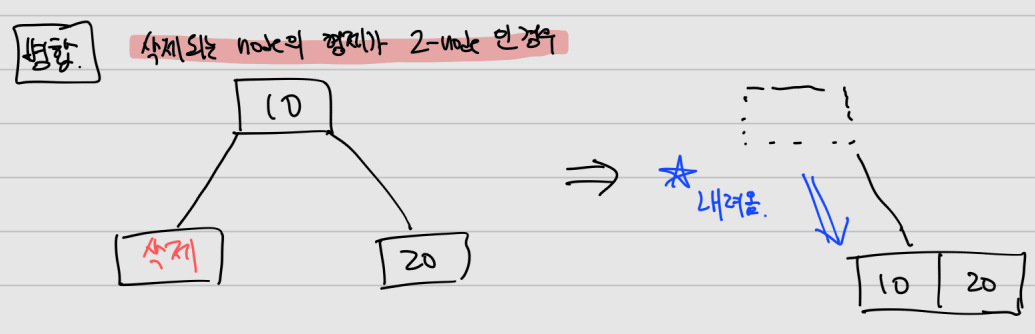 병합.
삭제되는 node의 형제가 2-node 인 경우
10
삭제
20
⇒
☆ 내려옴.
10 20